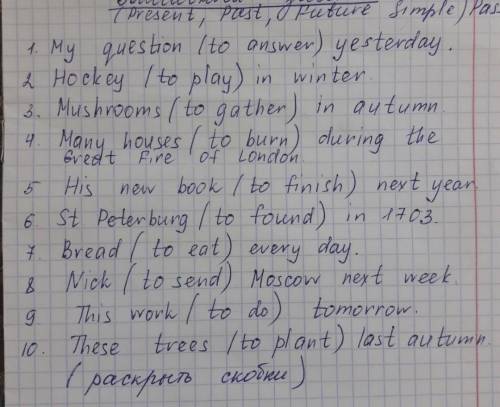 (Present, Past, Future Simple) Pas
1. My question (to answer) yesterday.
2 Hockey (to play) in winter.
3. Mushrooms (to gather) in autumn.
4. Many houses (to burn) during the
Great Fire of London.
5 His new book (to finish) next year
6 St Peterburg (to found) in 1703.
7. Bread (to eat) every day.
8 Nick (to send) Moscow next week.
9 This work (to do) tomorrow.
10. These trees (to plant) last autumn.
(раскрыть скобки)